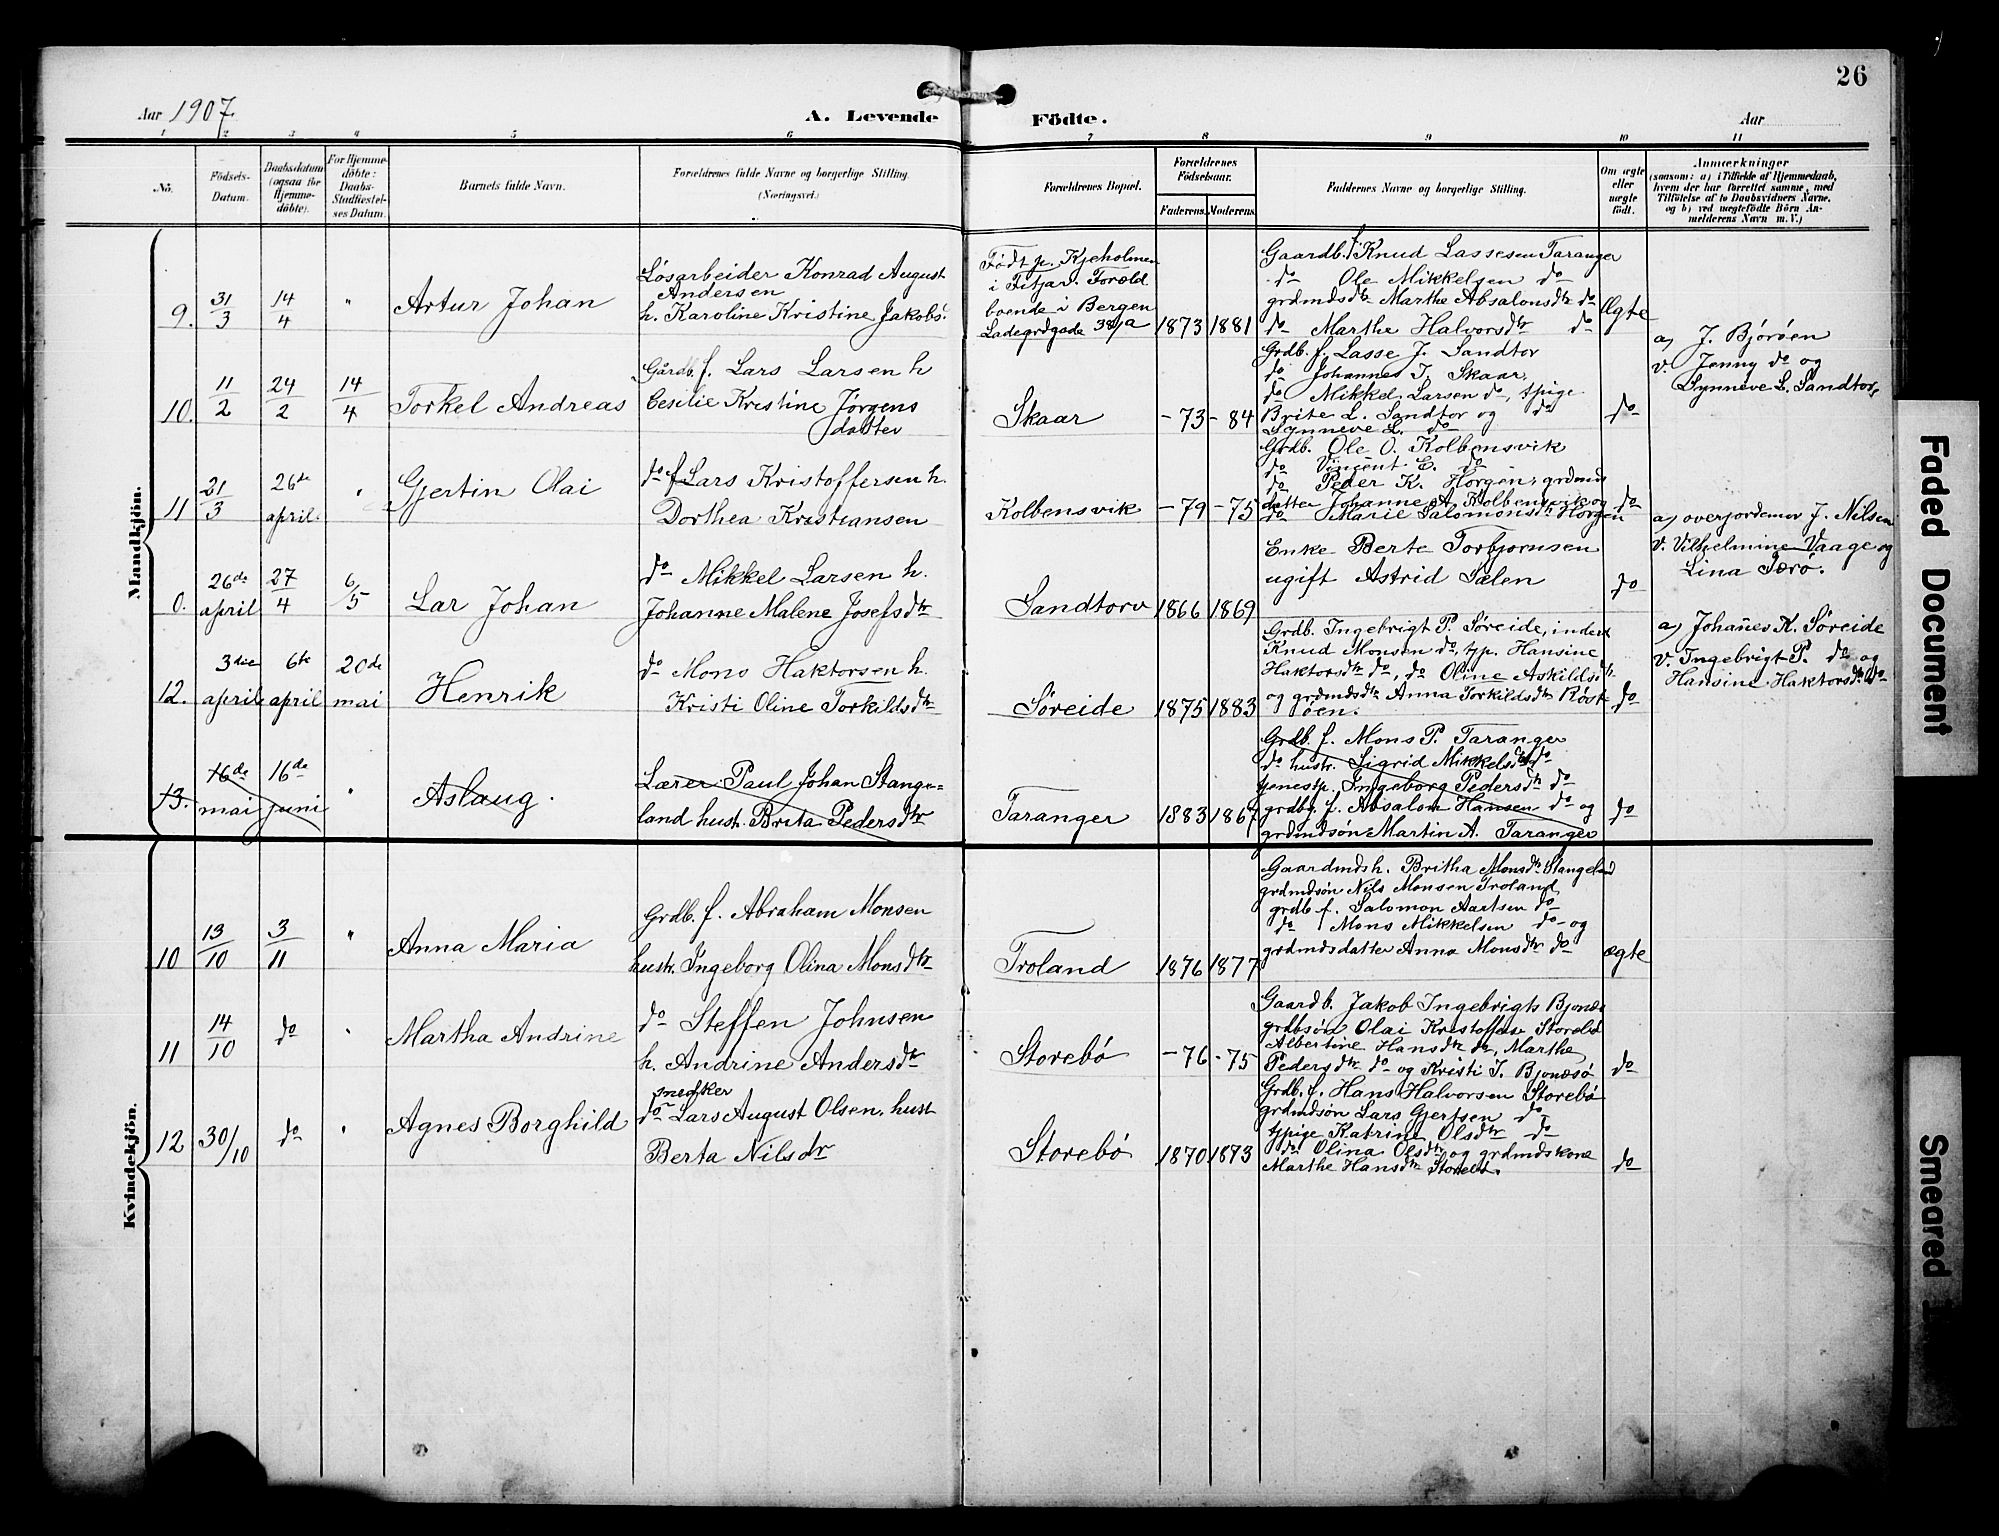 26
Aar 1907.
A. Levende Födte.
Aar
1 2 3 4 5 6 7 8 9 10 11
No.
Födsels-Datum.
Daabsdatum (ogsaa for Hjemme-döbte).
For Hjemme-döbte: Daabs-Stadfæstel-ses Datum.
Barnets fulde Navn.
Forældrenes fulde Navne og borgerlige Stilling.
(Næringsvei.)
Forældrenes Bopæl.
Forældrenes Födselsaar.
Faderens. Moderens.
Faddernes Navne og borgerlige Stilling.
Om ægte eller uægte født.
Anmærkninger
(saasom: a) i Tilfælde af Hjemmedaab,
hvem der har forrettet samme, med
Tilföielse af to Daabsvidners Navne,
og b) ved uægtefödte Börn An-
melderens Navn m. V.)
Mandkjön.
9. 31/3 14/4 " Artur Johan
Løsarbeider Konrad August
Andersen
h. Karoline Kristine Jakobs.
Født p. Kjeholmen
i Fitjar. Foræld.
boende i Bergen
Ladegrdgade 38/a
1873 1881
Gaardb. f. Knud Lassesen Taranger
do Ole Mikkelsen do
grdmdsdtr Marthe Absalonsdtr do
do Marthe Halvorsdtr do
Ægte
10. 11/2 24/2 14/4 Torkel Andreas
Gårdb. f. Lars Larsen h
Cesilie Kristine Jørgens
datter
Skaar
-73 -84
Grdb. f. Lasse J. Sandtor
do Johannes J. Skaar,
do Mikkel Larsen do, tpige
Brite L. Sandtor og do
Synneve L. do
do
a) J. Bjørøen
v. Jenny do og
Synneve L. Sandtorv
11 21/3 26de april. " Gjertin Olai
do f Lars Kristoffersen h.
Dorthea Kristiansen
Kolbensvik
-79 -75
Grdb. Ole O. Kolbensvik
do Vincent E. do
do Peder K. Horgen, grdmds
datter Johanne A. Kolbensvik og
do Marie Salomonsdtr Horgen
do
0. 26de april 27/4 6/5 Lar Johan
do Mikkel Larsen h.
Johanne Malene Josefsdtr
Sandtorv
1866 1869
Enke Berte Torbjørnsen
ugift Astrid Sælen
do
a) overjordemor J. Nilsen
v. Vilhelmine Vaage og
Lina Særø.
12. 3die april 6te april 20de mai Henrik
do Mons Haktorsen h.
Kristi Oline Torkildsdtr
Søreide
1875 1883
Grdb. Ingebrigt P. Søreide, inderst
Knud Monsen do, tp. Hansine
Haktorsdtr do, do Oline Askildsdtr
og grdmdsdtr Anna Torkildsdtr Røst-
øen.
do
a) Johañes K. Søreide
v. Ingebrigt P. do og
Hansine Haktorsdtr do
13. 16de mai 16de juni " Aslaug.
Lærer Paul Johan Stange-
land hust. Brita Pedersdtr
Taranger
1883 1867
Grdb. f. Mons P. Taranger
do hustr. Sigrid Mikkelsdtr do
tjenestp. Ingeborg Pedersdtr do
grdbg f. Absalon Hansen do og
grdmdsøn Martin A. Taranger
do
Kvindekjön.
10 13/10 3/11 " Anna Maria
Grdb. f. Abraham Monsen
hustr. Ingeborg Olina Monsdtr
Troland
1876 1877
Gaardmdsh. Britha Monsdtr Stangeland
grdmdsøn Nils Monsen Troland
grdb f. Salomon Aartsen do
do Mons Mikkelsen do og
grdmdsdatter Anna Monsdtr do
ægte
11 14/10 do " Martha Andrine
do Steffen Johnsen
h. Andrine Andersdtr
Storebø
-76 -75
Gaardb. Jakob Ingebrigts Bjonæs
grdbsøn Olai Kristoffers Storebø
Albertine Hansdtr do, Marthe
Pedersdtr do og Kristi J. Bjonæsø
do
12 30/10 do " Agnes Borghild
snedker
do Lars August Olsen, hust
Berta Nilsdtr
Storebø
1870 1873
Grdb. f. Hans Halvorsen Storebø
grdmdsøn Lars Gjertsen do
tpige Katrine Olsdtr do
do Olina Olsdtr og grdmdskone
Marthe Hansdtr Storebø.
do
Faded Document
Smeared